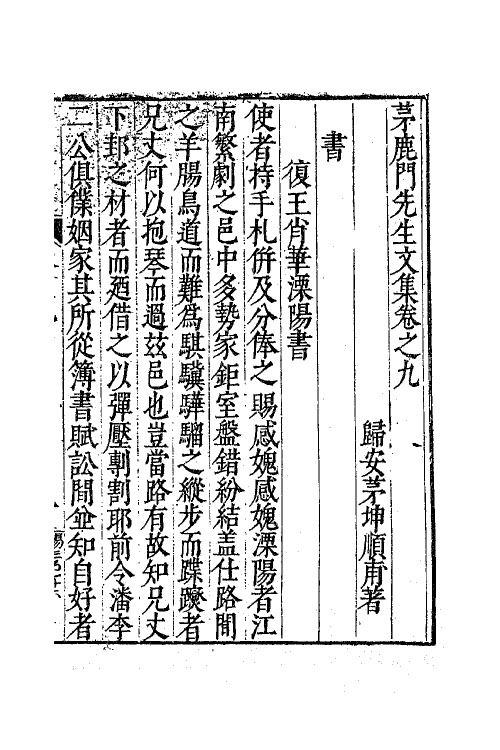 茅鹿門先生文集卷之九
歸安茅坤順甫著
書
復王肖華溧陽書
使者持手札併及分俸之賜感媿感媿溧陽者江
南繁劇之邑中多勢家鉅室盤錯紛結盖仕路間
之羊腸鳥道而難為騏驥驊騮之縱步而蹀躞者
兄丈何以抱琴而過玆邑也豈當路有故知兄丈
下邽之材者而廼借之以彈壓剸割耶前令潘李
二公俱僕姻家其所從簿書賦訟間並知自好者